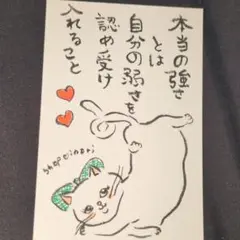 本当の強さ
とは
自分の弱さを
認め受け
入れること
shop oinari